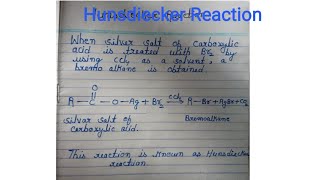 Hunsdiecker Reaction
When silver salt of carboxylic
acid is treated with Br2 by
using CCl4 as a solvent, a
bromo alkane is obtained
O
R - C - O - Ag + Br2 CCl4 R - Br + AgBr + CO2
silver salt of
carboxylic acid.
Bromoalkane
This reaction is known as Hunsdiecker
reaction